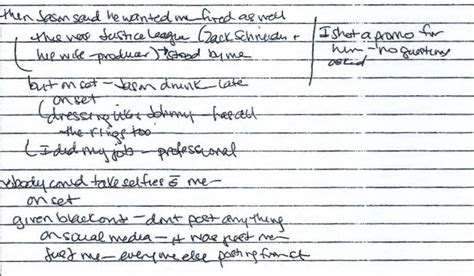 then Jason said he wanted me fired as well
this was Justice League (Zack Schneider +
his wife - producer) stood by me
I shot a promo for
him - no questions
asked
but on set - Jason drunk - late
on set
(dressing like Johnny - has all
the rings too
(I did my job - professional
nobody could take selfies c̄ me -
on set
given blackout - dont post anything
on social media - it was just me -
Just me - everyone else posting from